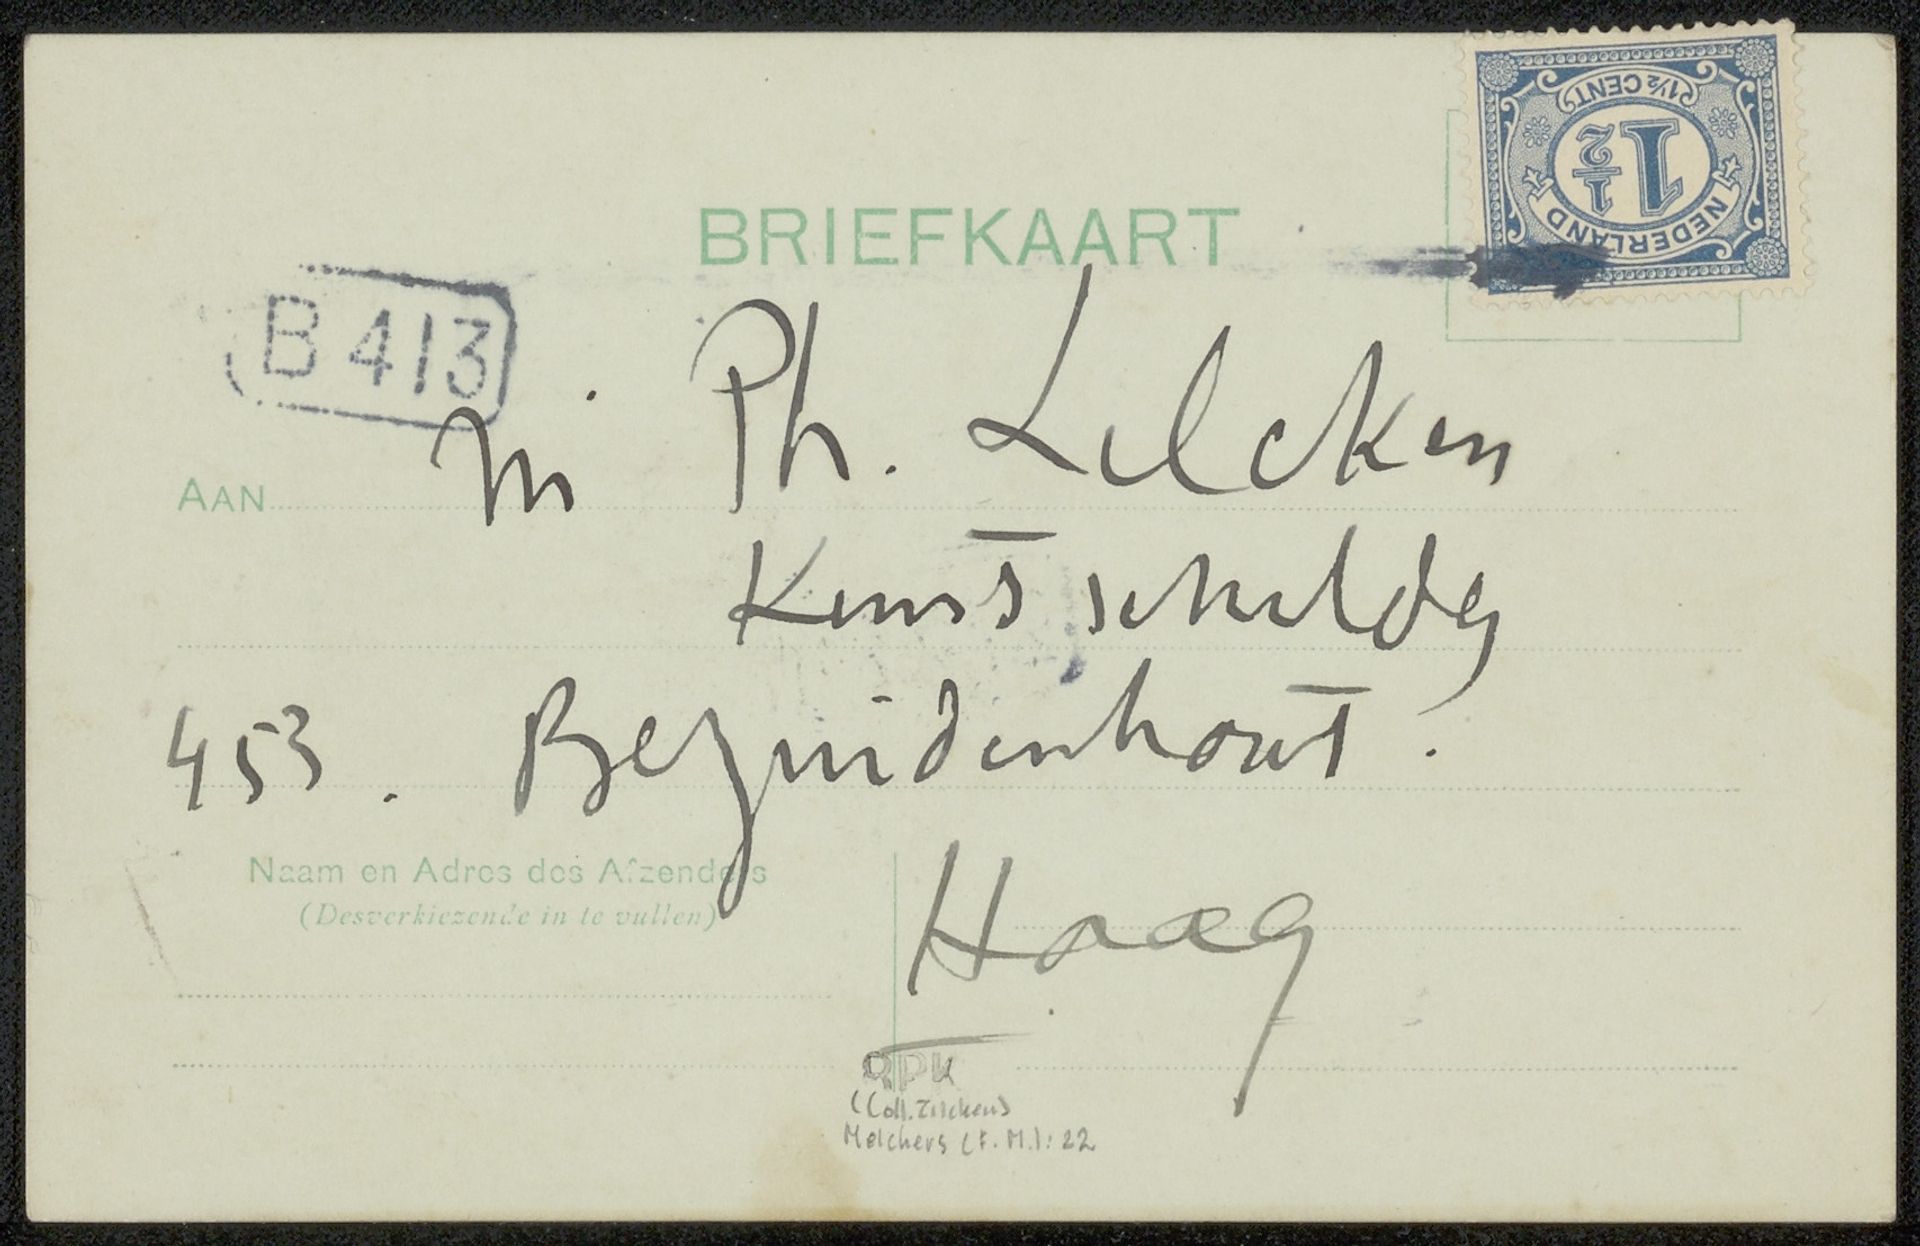 BRIEFKAART
1½ CENT
1½
NEDERLAND
B 413
AAN
M Ph. Zilcken
Kunstschilder
453. Bezuidenhout.
Naam en Adres des Afzenders
(Desverkiezende in te vullen)
Haag
RPK
(Coll. Zilcken)
Melchers (F. M.): 22